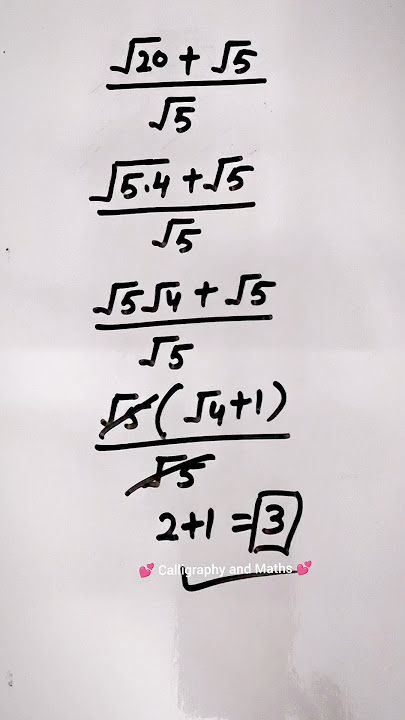 √20 + √5
√5
√5.4 + √5
√5
√5√4 + √5
√5
√5(√4+1)
√5
2+1 = 3
💕 Calligraphy and Maths 💕